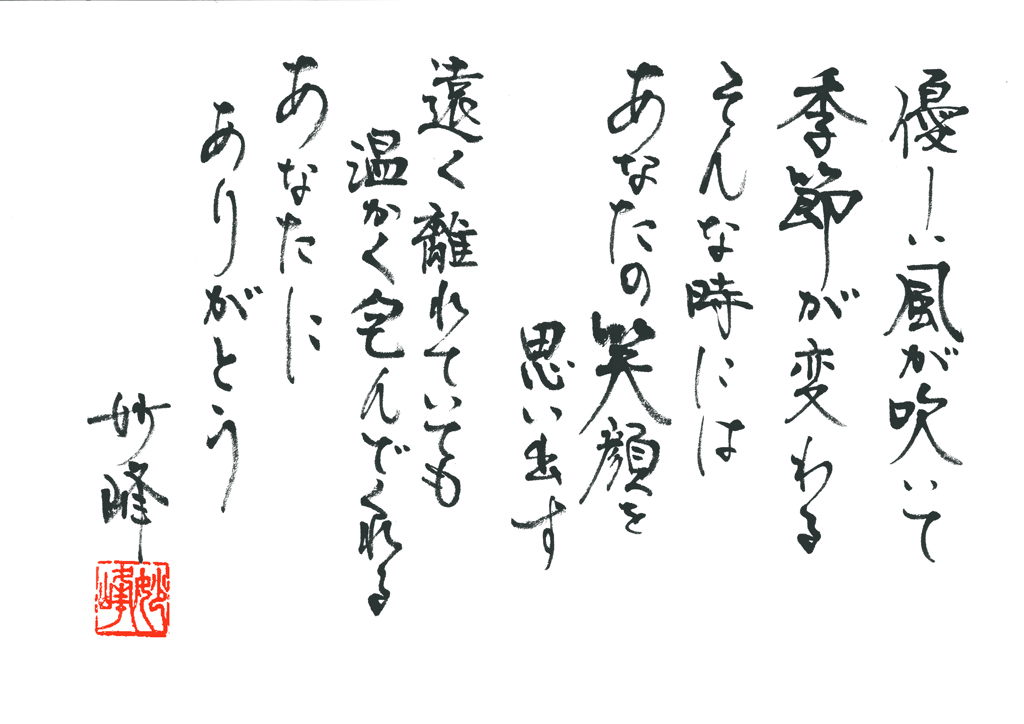 優しい風が吹いて
季節が変わる
そんな時には
あなたの笑顔を
思い出す
遠く離れていても
温かく包んでくれる
あなたに
ありがとう
妙峰
妙峰